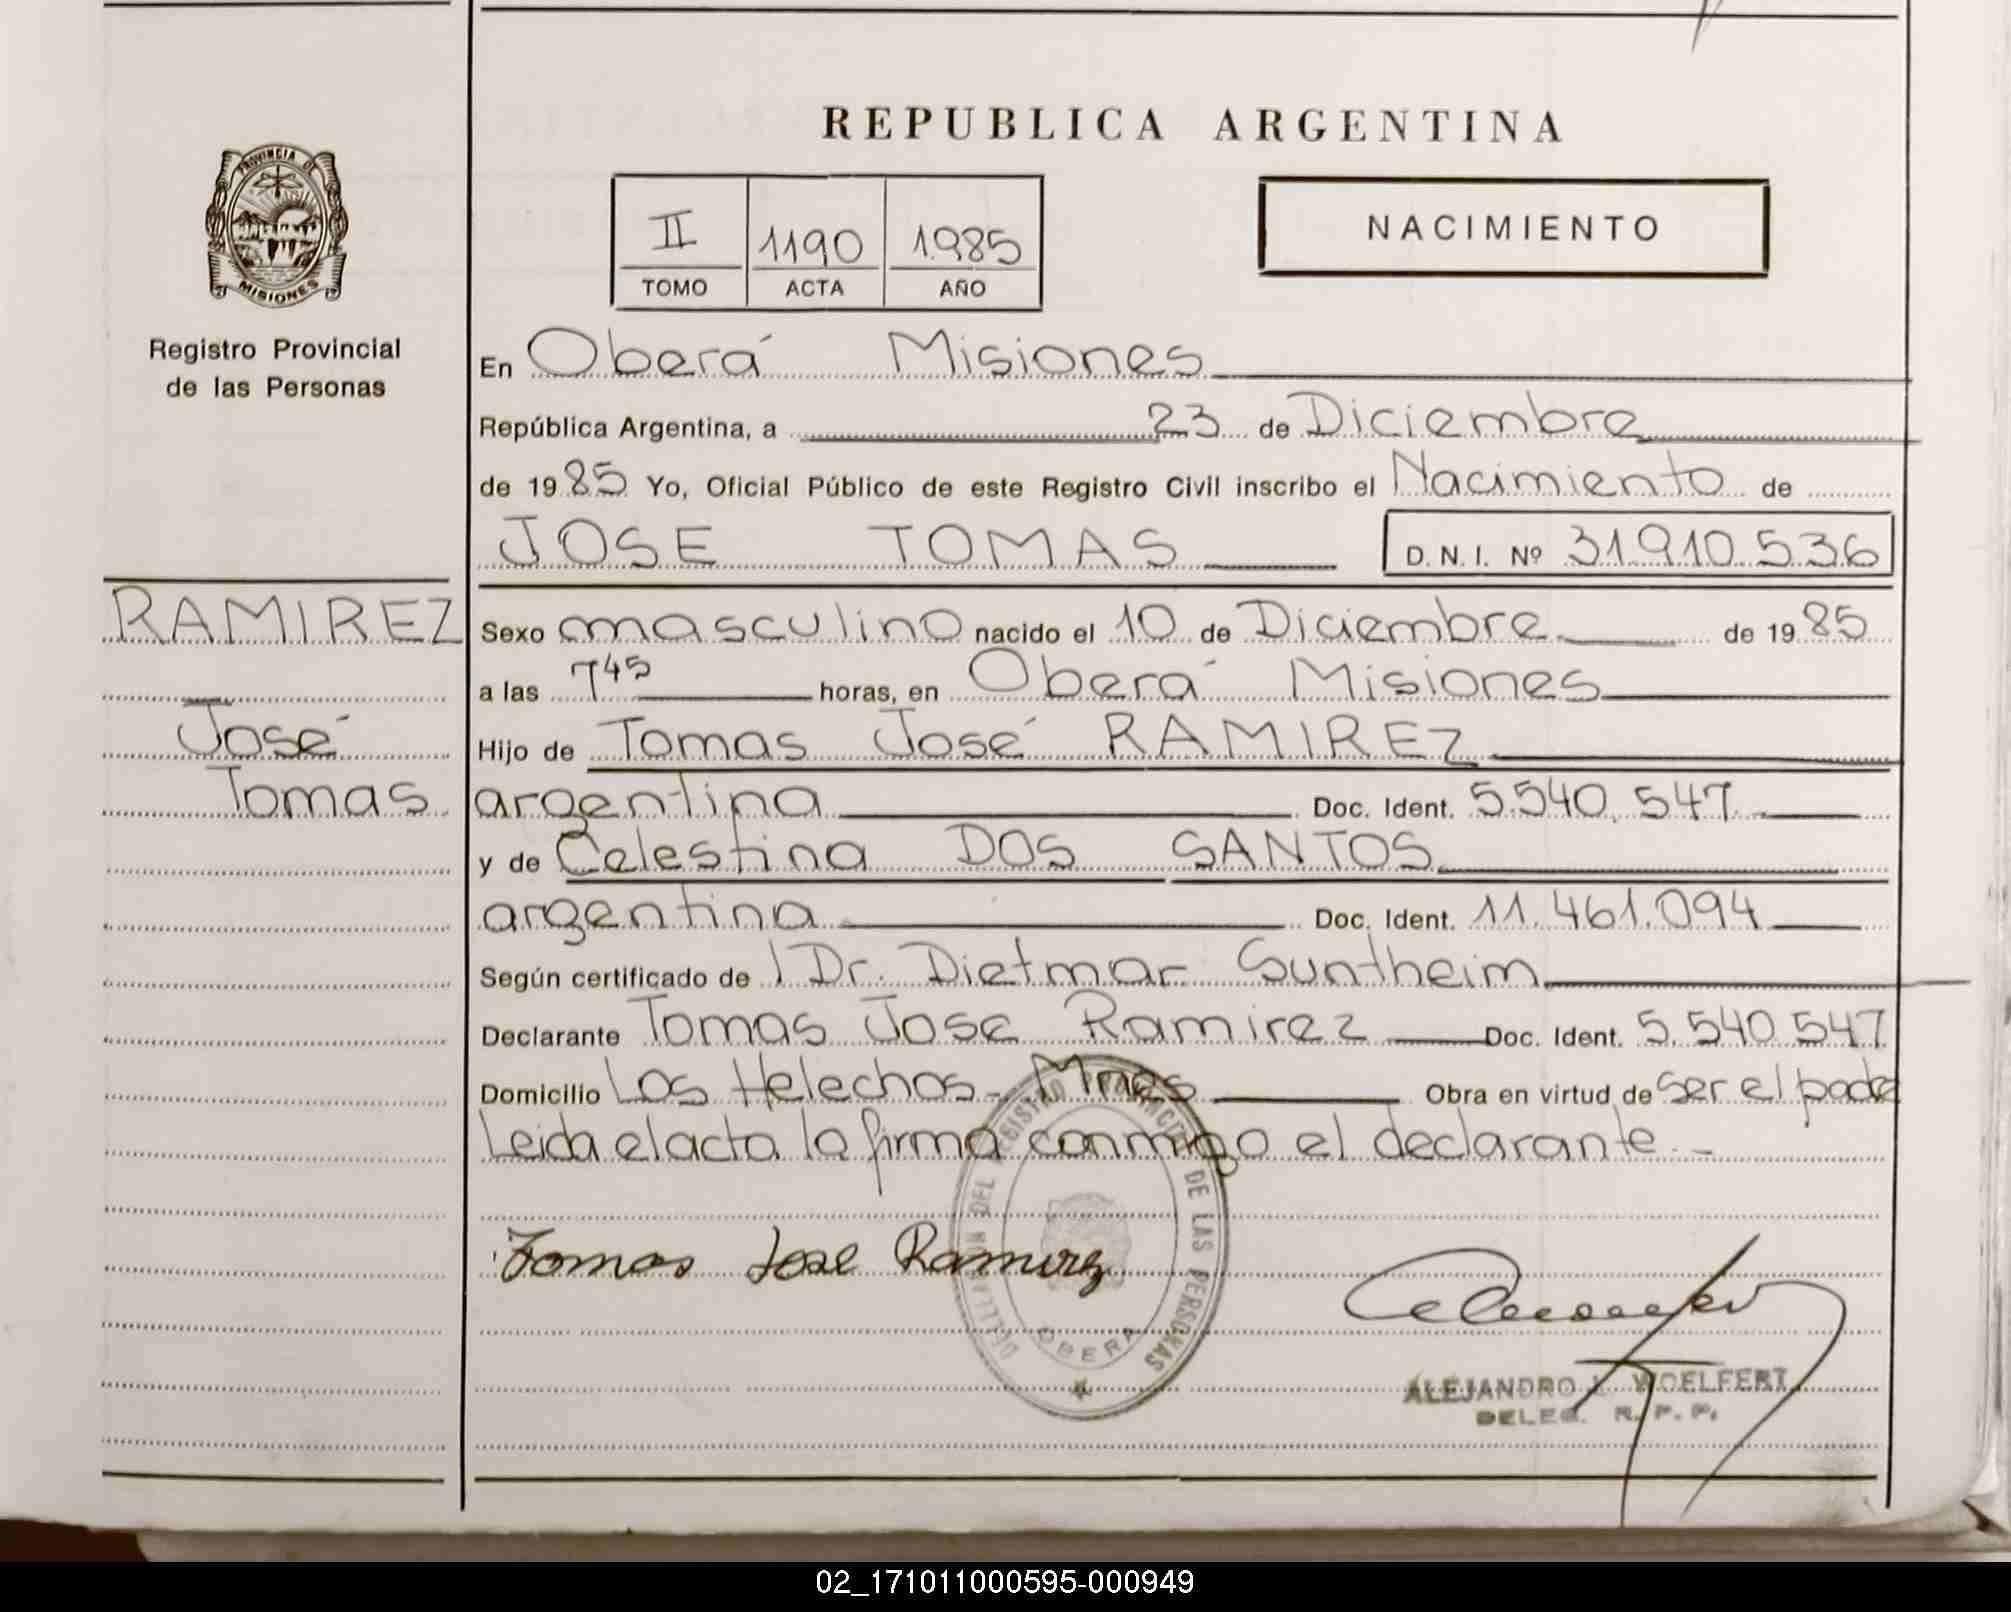 REPUBLICA ARGENTINA
PROVINCIA DE
MISIONES
Registro Provincial
de las Personas
II 1190 1985
TOMO ACTA AÑO
NACIMIENTO
En Oberá Misiones
República Argentina, a 23 de Diciembre
de 1985 Yo, Oficial Público de este Registro Civil inscribo el Nacimiento de
JOSE TOMAS D. N. I. Nº 31.910.536
RAMIREZ
José
Tomas
Sexo masculino nacido el 10 de Diciembre de 1985
a las 7 45 horas, en Oberá Misiones
Hijo de Tomas José RAMIREZ
argentina Doc. Ident. 5.540.547
y de Celestina DOS SANTOS
argentina Doc. Ident. 11.461.094
Según certificado de Dr. Dietmar Suntheim
Declarante Tomas Jose Ramirez Doc. Ident. 5.540.547
Domicilio Los Helechos - Mnes Obra en virtud de ser el padre
Leida el acta la firma conmigo el declarante.-
DEL REGISTRO PROVINCIAL DE LAS PERSONAS
OBERA
Tomas Jose Ramirez
ALEJANDRO L. WOELFERT
DELEG. R. P. P.
02_171011000595-000949